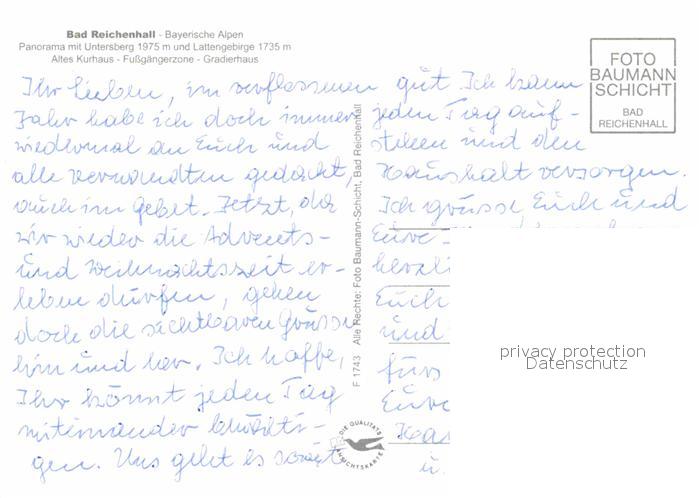 Bad Reichenhall - Bayerische Alpen
Panorama mit Untersberg 1975 m und Lattengebirge 1735 m
Altes Kurhaus - Fußgängerzone - Gradierhaus
Ihr Lieben, im verflossenen
Jahr habe ich doch immer
wiedermal an Euch und
alle Verwandten gedacht,
auch im Gebet. Jetzt, da
wir wieder die Advents-
und Weihnachtszeit er-
leben dürfen, gehen
doch die sichtbaren Grüsse
hin und her. Ich hoffe,
Ihr könnt jeden Tag
miteinander bewälti-
gen. Uns geht es soweit
gut. Ich kann
jeden Tag auf-
stehen und den
Haushalt versorgen.
Ich grüsse Euch und
Eure
herzli
Euch
und
fürs
Eure
u.
F 1743 Alle Rechte: Foto Baumann-Schicht, Bad Reichenhall
DIE QUALITÄTS
ANSICHTSKARTE
FOTO
BAUMANN
SCHICHT
BAD
REICHENHALL
privacy protection
Datenschutz